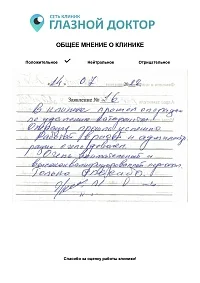 СЕТЬ КЛИНИК
ГЛАЗНОЙ ДОКТОР
ОБЩЕЕ МНЕНИЕ О КЛИНИКЕ
Положительное Нейтральное Отрицательное
14. 07
Заявление № 26
В клинике прошел операцию
по удалению катаракты.
Операция прошла успешно
Работой врачей и
Очень внимательный и
высококвалифицированный персонал.
Спасибо за оценку работы клиники!